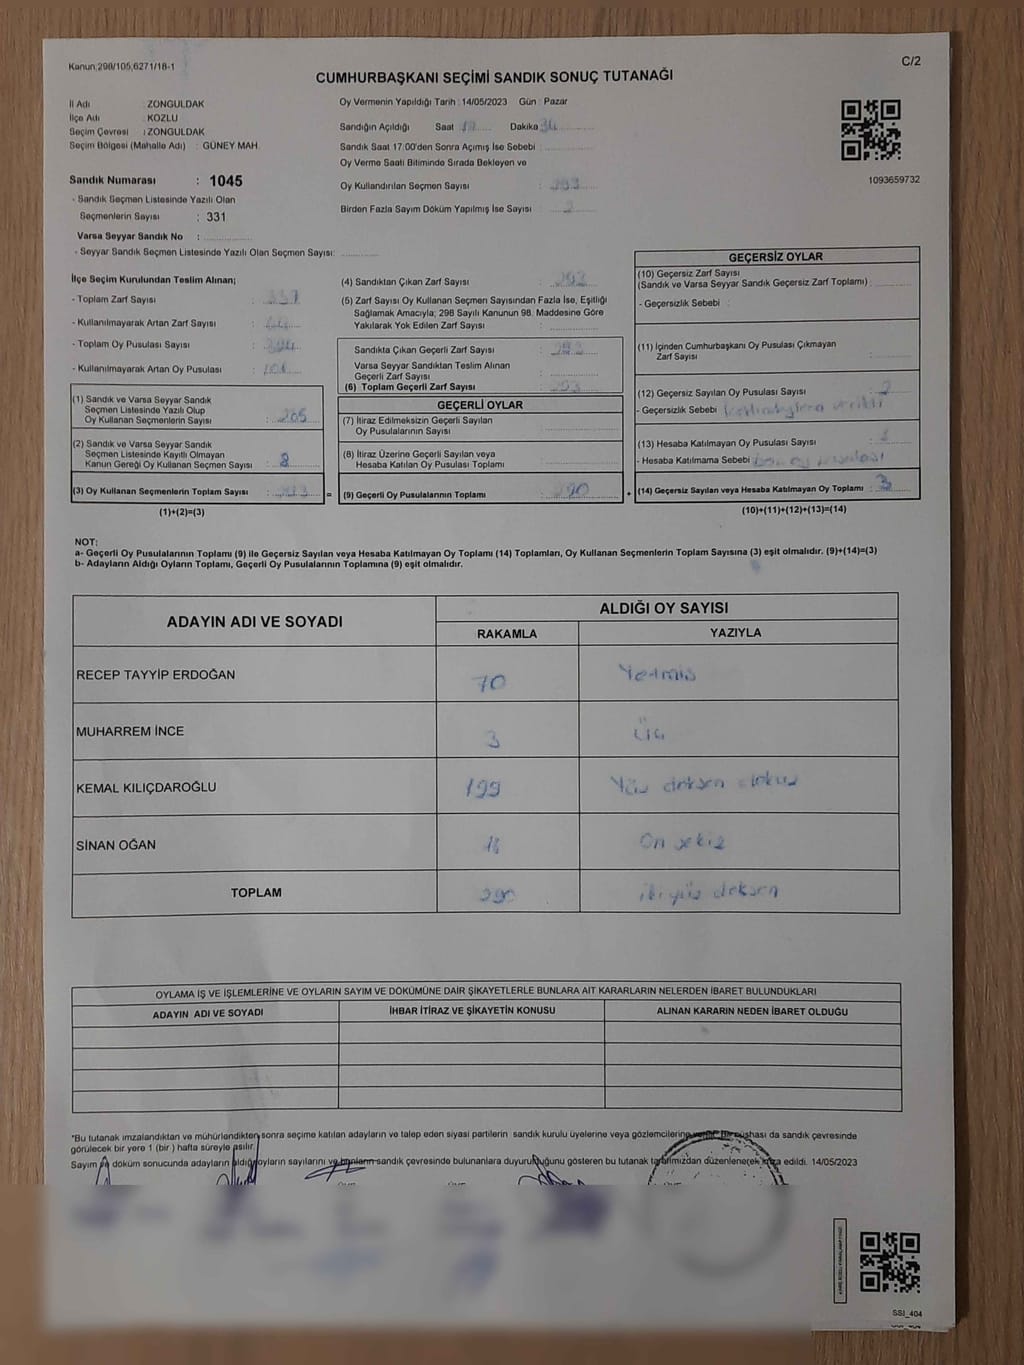 Kanun;298/105,6271/18-1
C/2
CUMHURBAŞKANI SEÇİMİ SANDIK SONUÇ TUTANAĞI
İl Adı : ZONGULDAK
İlçe Adı : KOZLU
Seçim Çevresi : ZONGULDAK
Seçim Bölgesi (Mahalle Adı) : GÜNEY MAH.
Sandık Numarası : 1045
- Sandık Seçmen Listesinde Yazılı Olan
Seçmenlerin Sayısı : 331
Varsa Seyyar Sandık No :
- Seyyar Sandık Seçmen Listesinde Yazılı Olan Seçmen Sayısı:
Oy Vermenin Yapıldığı Tarih : 14/05/2023 Gün : Pazar
Sandığın Açıldığı Saat Dakika
Sandık Saat 17:00'den Sonra Açımış İse Sebebi :
Oy Verme Saati Bitiminde Sırada Bekleyen ve
Oy Kullandırılan Seçmen Sayısı : 293
Birden Fazla Sayım Döküm Yapılmış İse Sayısı :
1093659732
İlçe Seçim Kurulundan Teslim Alınan;
- Toplam Zarf Sayısı :
- Kullanılmayarak Artan Zarf Sayısı :
- Toplam Oy Pusulası Sayısı :
- Kullanılmayarak Artan Oy Pusulası :
(1) Sandık ve Varsa Seyyar Sandık
Seçmen Listesinde Yazılı Olup
Oy Kullanan Seçmenlerin Sayısı : 285
(2) Sandık ve Varsa Seyyar Sandık
Seçmen Listesinde Kayıtlı Olmayan
Kanun Gereği Oy Kullanan Seçmen Sayısı : 8
(3) Oy Kullanan Seçmenlerin Toplam Sayısı : 293 =
(1)+(2)=(3)
(4) Sandıktan Çıkan Zarf Sayısı : 293
(5) Zarf Sayısı Oy Kullanan Seçmen Sayısından Fazla İse, Eşitliği
Sağlamak Amacıyla; 298 Sayılı Kanunun 98. Maddesine Göre
Yakılarak Yok Edilen Zarf Sayısı :
Sandıkta Çıkan Geçerli Zarf Sayısı : 293
Varsa Seyyar Sandıktan Teslim Alınan
Geçerli Zarf Sayısı :
(6) Toplam Geçerli Zarf Sayısı : 293
GEÇERLİ OYLAR
(7) İtiraz Edilmeksizin Geçerli Sayılan
Oy Pusulalarının Sayısı :
(8) İtiraz Üzerine Geçerli Sayılan veya
Hesaba Katılan Oy Pusulası Toplamı :
(9) Geçerli Oy Pusulalarının Toplamı : 290 +
GEÇERSİZ OYLAR
(10) Geçersiz Zarf Sayısı
(Sandık ve Varsa Seyyar Sandık Geçersiz Zarf Toplamı) :
- Geçersizlik Sebebi :
(11) İçinden Cumhurbaşkanı Oy Pusulası Çıkmayan
Zarf Sayısı :
(12) Geçersiz Sayılan Oy Pusulası Sayısı : 2
- Geçersizlik Sebebi :
(13) Hesaba Katılmayan Oy Pusulası Sayısı :
- Hesaba Katılmama Sebebi :
(14) Geçersiz Sayılan veya Hesaba Katılmayan Oy Toplamı : 3
(10)+(11)+(12)+(13)=(14)
NOT:
a- Geçerli Oy Pusulalarının Toplamı (9) ile Geçersiz Sayılan veya Hesaba Katılmayan Oy Toplamı (14) Toplamları, Oy Kullanan Seçmenlerin Toplam Sayısına (3) eşit olmalıdır. (9)+(14)=(3)
b- Adayların Aldığı Oyların Toplamı, Geçerli Oy Pusulalarının Toplamına (9) eşit olmalıdır.
ADAYIN ADI VE SOYADI ALDIĞI OY SAYISI
RAKAMLA YAZIYLA
RECEP TAYYİP ERDOĞAN 70 Yetmiş
MUHARREM İNCE 3 Üç
KEMAL KILIÇDAROĞLU 199 Yüz doksan dokuz
SİNAN OĞAN 18 On sekiz
TOPLAM 290 iki yüz doksan
OYLAMA İŞ VE İŞLEMLERİNE VE OYLARIN SAYIM VE DÖKÜMÜNE DAİR ŞİKAYETLERLE BUNLARA AİT KARARLARIN NELERDEN İBARET BULUNDUKLARI
ADAYIN ADI VE SOYADI İHBAR İTİRAZ VE ŞİKAYETİN KONUSU ALINAN KARARIN NEDEN İBARET OLDUĞU
*Bu tutanak imzalandıktan ve mühürlendikten sonra seçime katılan adayların ve talep eden siyasi partilerin sandık kurulu üyelerine veya gözlemcilerine verilir. Bir nüshası da sandık çevresinde
görülecek bir yere 1 (bir ) hafta süreyle asılır.
Sayım ve döküm sonucunda adayların aldığı oyların sayılarını ve bunların sandık çevresinde bulunanlara duyurulduğunu gösteren bu tutanak tarafımızdan düzenlenerek imza edildi. 14/05/2023
SSI_404